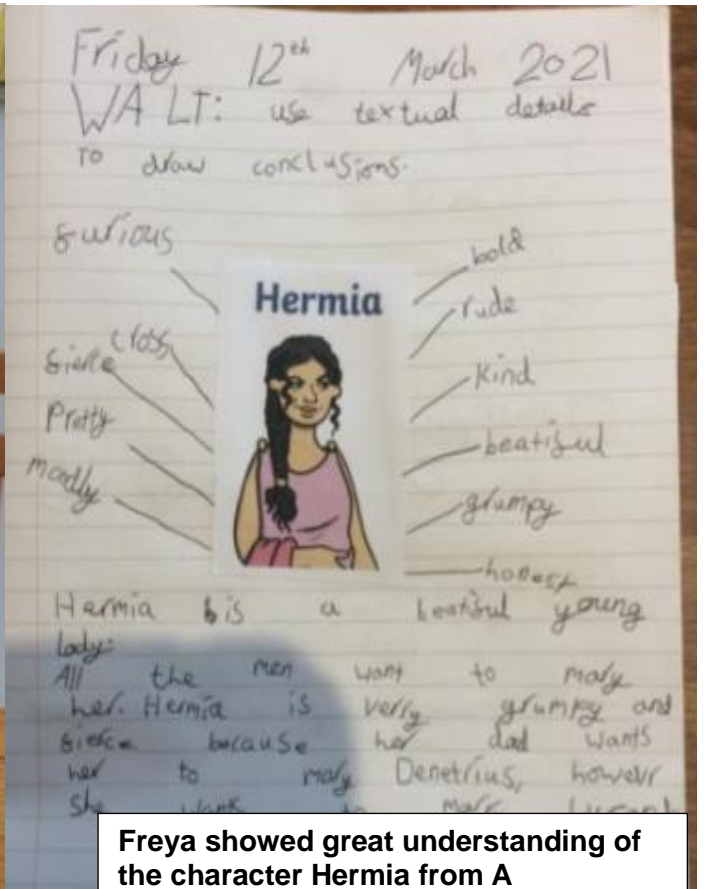 Friday 12th March 2021
WALT: use textual details
To draw conclusions.
furious
cross
fierce
Pretty
moodly
Hermia
bold
rude
Kind
beatiful
grumpy
honest
Hermia is a beatiful young
lady.
All the men want to mary
her. Hermia is verry grumpy and
fierce because her dad wants
her to mary Denetrius, howevr
she
Freya showed great understanding of
the character Hermia from A